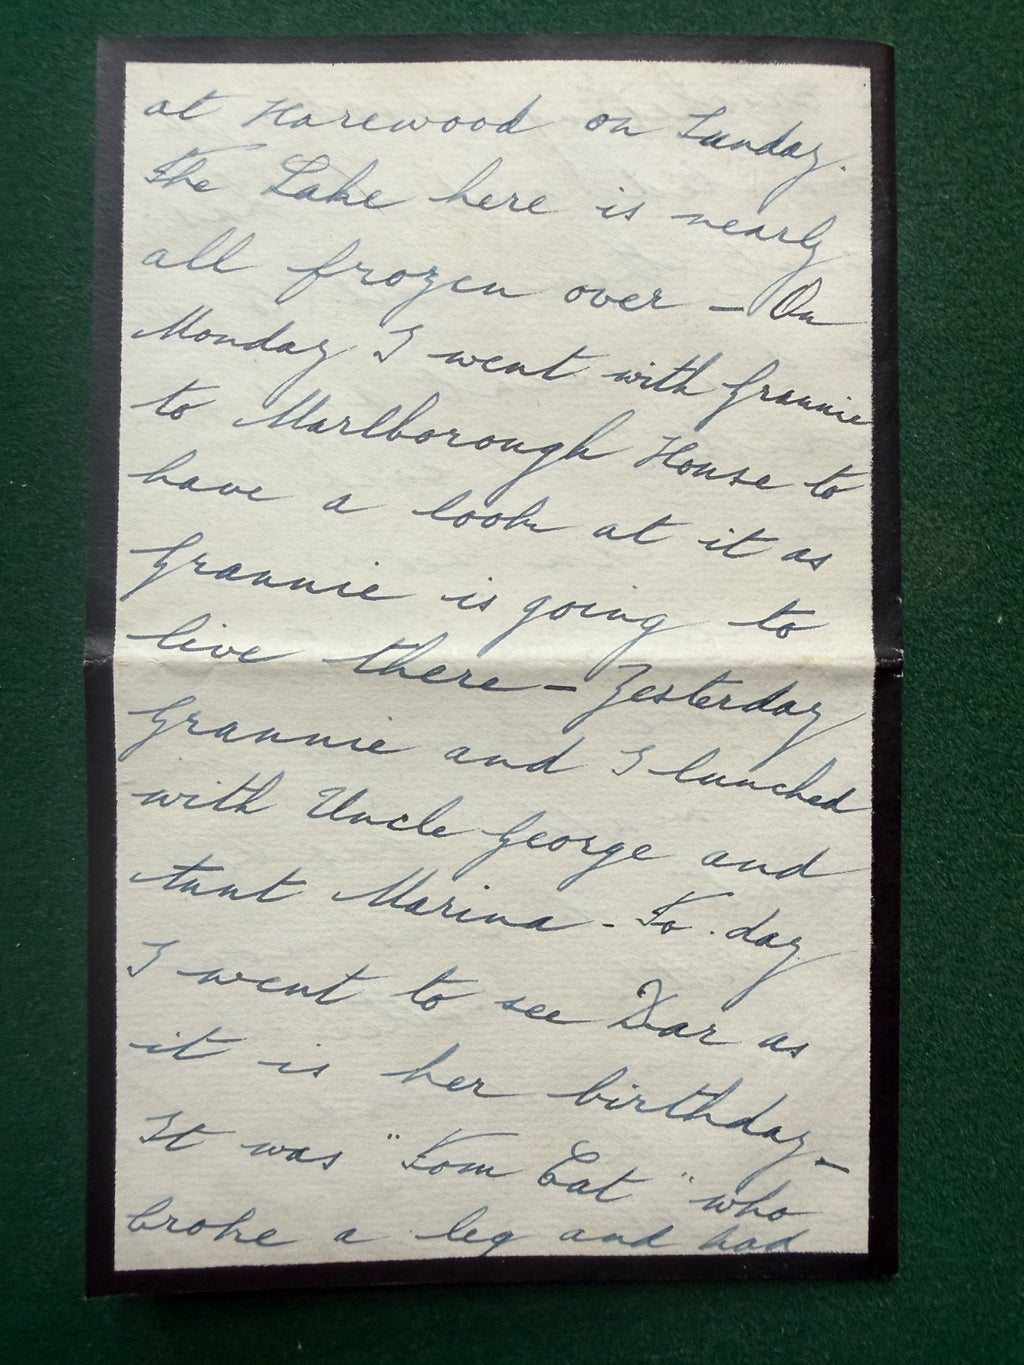 at Harewood on Sunday.
The Lake here is nearly
all frozen over – On
Monday I went with Grannie
to Marlborough House to
have a look at it as
Grannie is going to
live there – Yesterday
Grannie and I lunched
with Uncle George and
Aunt Marina - To-day
I went to see Dar as
it is her birthday –
It was "Tom Cat" who
broke a leg and had